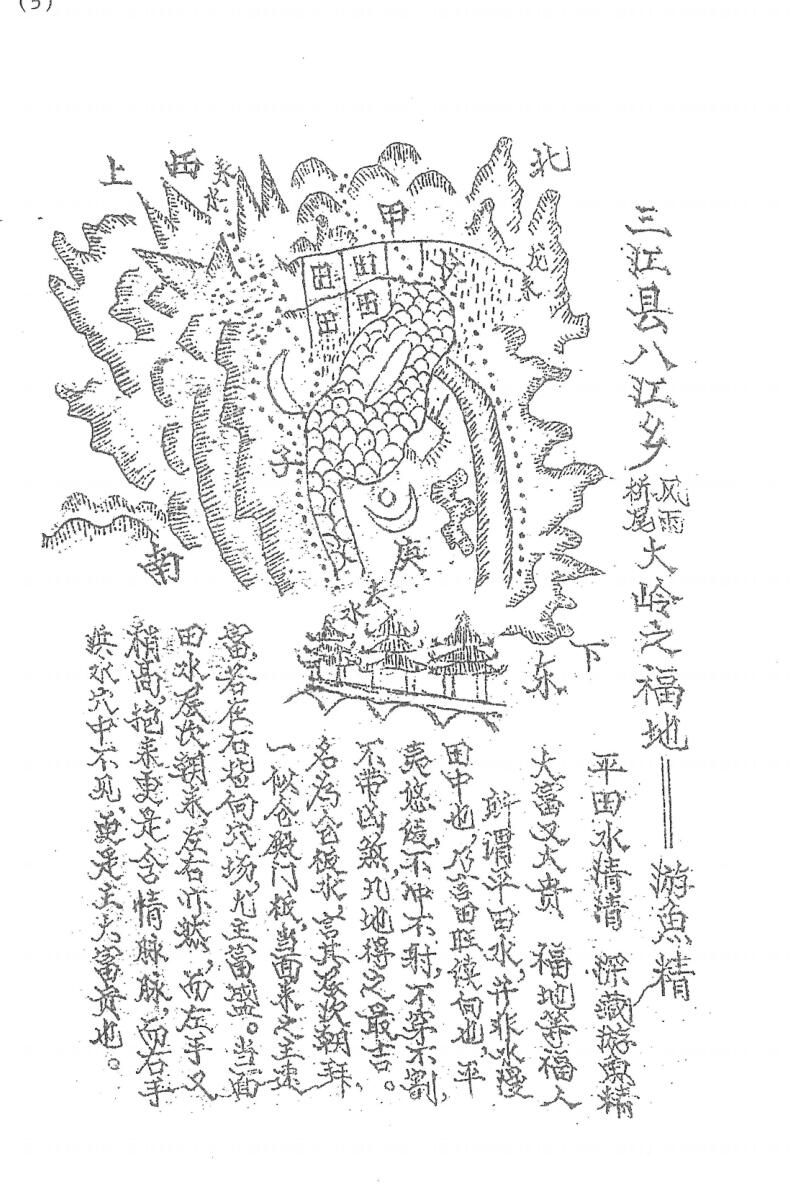 (5)
三江县八江乡风雨桥尾大岭之福地——游魚精
平田水清清 深藏游魚精
大富又大贵 福地等福人
所谓平田水,并非水漫
田中也,乃言田旺续向也,平
夷悠遠,不冲不射,不穿不割,
不带凶煞,凡地得之最吉。
名为仓板水,言其层次朝拜,
一似仓殿门板,当面来之主速
富,若在石
穴场,尤主富盛。当面
田水,层次朝来,左右亦然,而左手又
稍高,抱来更是含情脉脉,而右手
水穴中不见,更是主大富贵也。
上
西
北
甲
田
田
田
田
子
庚
南
去水
东
下